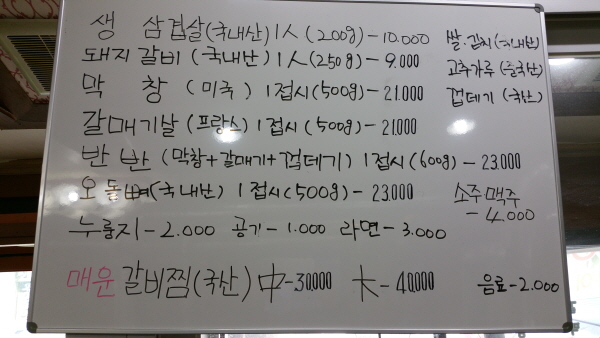 생 삼겹살(국내산) 1人 (200g) - 10.000
돼지갈비 (국내산) 1人 (250g) - 9.000
막 창 (미국) 1접시 (500g) - 21.000
갈매기살 (프랑스) 1접시 (500g) - 21.000
반 반 (막창+갈매기+껍데기) 1접시 (600g) - 23.000
오돌뼈(국내산) 1접시 (500g) - 23.000
누룽지 - 2.000 공기 - 1.000 라면 - 3.000
매운 갈비찜(국산) 中 - 30.000 大 - 40.000
쌀.김치 (국내산)
고추가루 (중국산)
껍데기 (국산)
소주맥주
- 4.000
음료 - 2.000